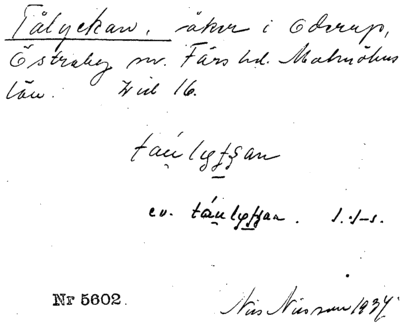 Tålyckan, åker i Öderup,
Östraby sn. Färs hd. Malmöhus
län.
táu lyʃʃan
ev. táulyʃʃan. s. s-s.
Nr 5602
Nils Nilsson 1934